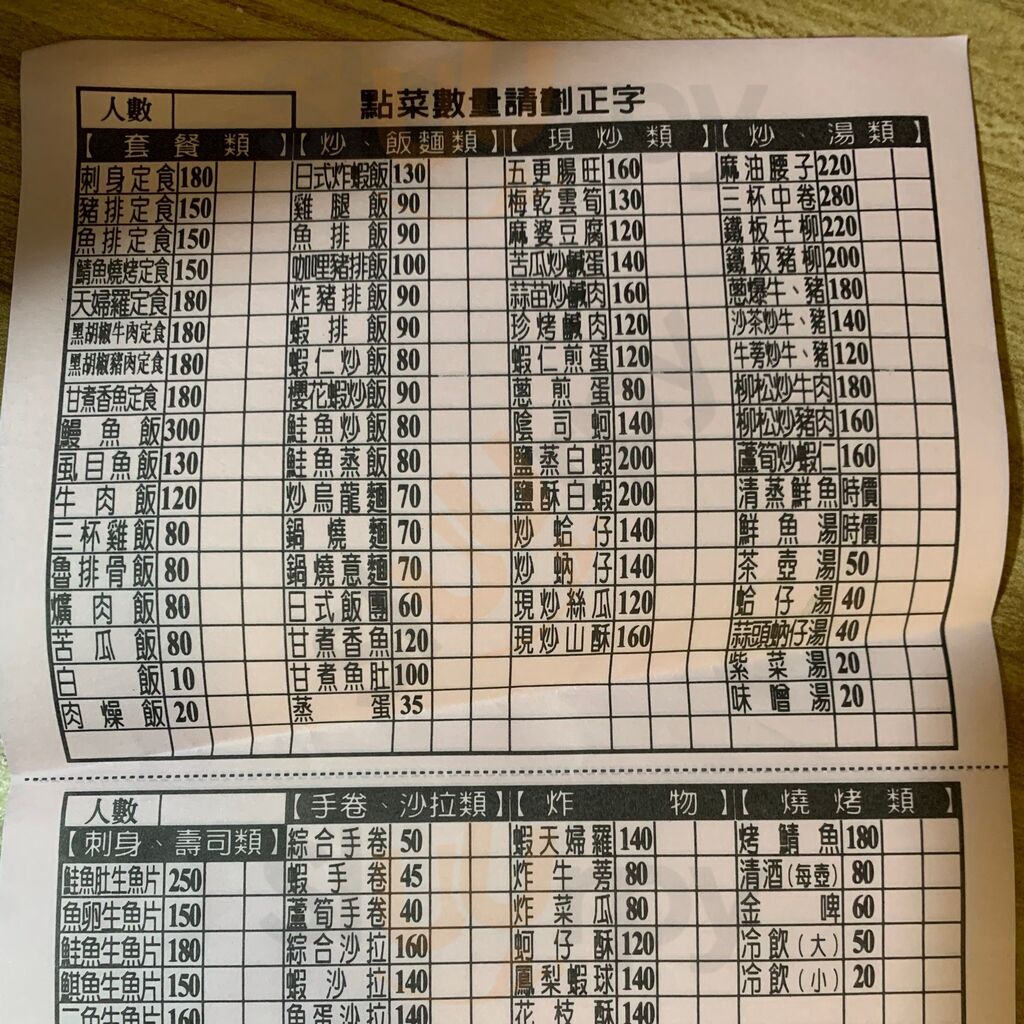 人數 點菜數量請劃正字
【套餐類】【炒、飯麵類】【現炒類】【炒、湯類】
刺身定食 180 日式炸蝦飯 130 五更腸旺 160 麻油腰子 220
豬排定食 150 雞腿飯 90 梅乾雲筍 130 三杯中卷 280
魚排定食 150 魚排飯 90 麻婆豆腐 120 鐵板牛柳 220
鯖魚燒烤定食 150 咖哩豬排飯 100 苦瓜炒鹹蛋 140 鐵板豬柳 200
天婦羅定食 180 炸豬排飯 90 蒜苗炒鹹肉 160 蔥爆牛、豬 180
黑胡椒牛肉定食 180 蝦排飯 90 珍烤鹹肉 120 沙茶炒牛、豬 140
黑胡椒豬肉定食 180 蝦仁炒飯 80 蝦仁煎蛋 120 牛蒡炒牛、豬 120
甘煮香魚定食 180 櫻花蝦炒飯 90 蔥煎蛋 80 柳松炒牛肉 180
鰻魚飯 300 鮭魚炒飯 80 陰司蚵 140 柳松炒豬肉 160
虱目魚飯 130 鮭魚蒸飯 80 鹽蒸白蝦 200 蘆筍炒蝦仁 160
牛肉飯 120 炒烏龍麵 70 鹽酥白蝦 200 清蒸鮮魚 時價
三杯雞飯 80 鍋燒麵 70 炒蛤仔 140 鮮魚湯 時價
魯排骨飯 80 鍋燒意麵 70 炒蚋仔 140 茶壺湯 50
爌肉飯 80 日式飯團 60 現炒絲瓜 120 蛤仔湯 40
苦瓜飯 80 甘煮香魚 120 現炒山酥 160 蒜頭蚋仔湯 40
白飯 10 甘煮魚肚 100 紫菜湯 20
肉燥飯 20 蒸蛋 35 味噌湯 20
人數 【手卷、沙拉類】【炸物】【燒烤類】
【刺身、壽司類】 綜合手卷 50 蝦天婦羅 140 烤鯖魚 180
鮭魚肚生魚片 250 蝦手卷 45 炸牛蒡 80 清酒(每壺) 80
魚卵生魚片 150 蘆筍手卷 40 炸菜瓜 80 金啤 60
鮭魚生魚片 180 綜合沙拉 160 蚵仔酥 120 冷飲(大) 50
鯕魚生魚片 150 蝦沙拉 140 鳳梨蝦球 140 冷飲(小) 20
二色生魚片 160 魚蛋沙拉 140 花枝酥 140